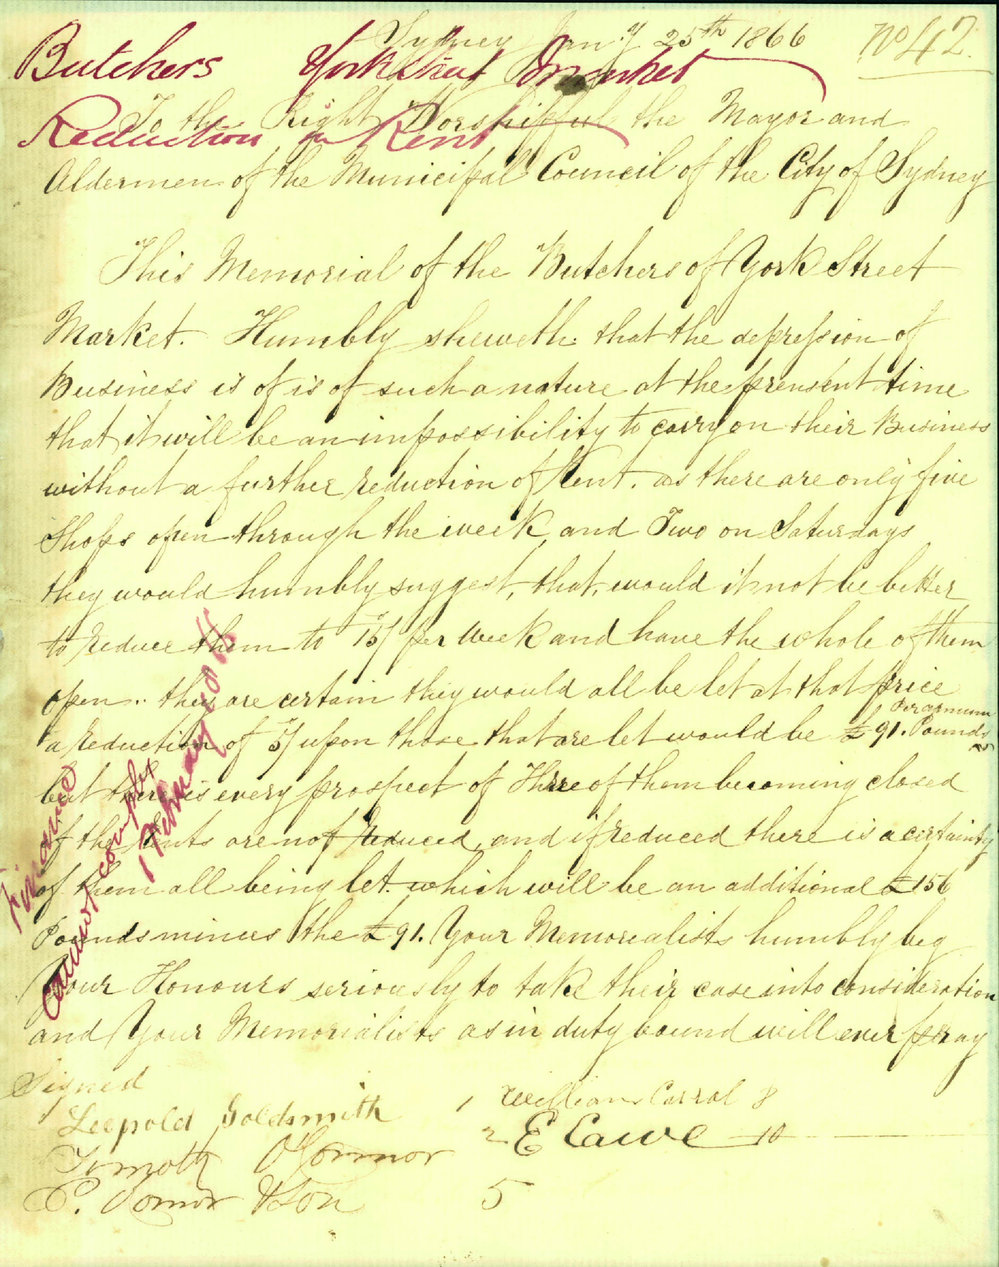 Sydney Jany 25th 1866
No 42
Butchers York Street Market
Reduction in Rent
To the Right Worshipful the Mayor and
Aldermen of the Municipal Council of the City of Sydney
This Memorial of the Butchers of York Street
Market. Humbly sheweth that the depression of
Business is of is of such a nature at the prensent time
that it will be an impossibility to carry on their Business
without a further reduction of Rent. as there are only five
Shops open through the week and Two on Saturdays
they would humbly suggest, that, would it not be better
to reduce them to 15/ per Week and have the whole of them
open.. they are certain they would all be let at that price
a reduction of 5/ upon those that are let would be £91. Pounds
per annum
but there is every prospect of Three of them becoming closed
if the rents are not reduced, and if reduced there is a certainty
of them all being let. which will be an additional £156
Pounds minus the £91. Your Memorialists humbly beg
Your Honours seriously to take their case into consideration
and Your Memorialists as in duty bound will ever pray
Signed
Leopold Goldsmith 1
William Carrol 8
Timothy O'Connor 2
E Lawe 10
&Son 5
Finance
Cannot comply
1 February 1866